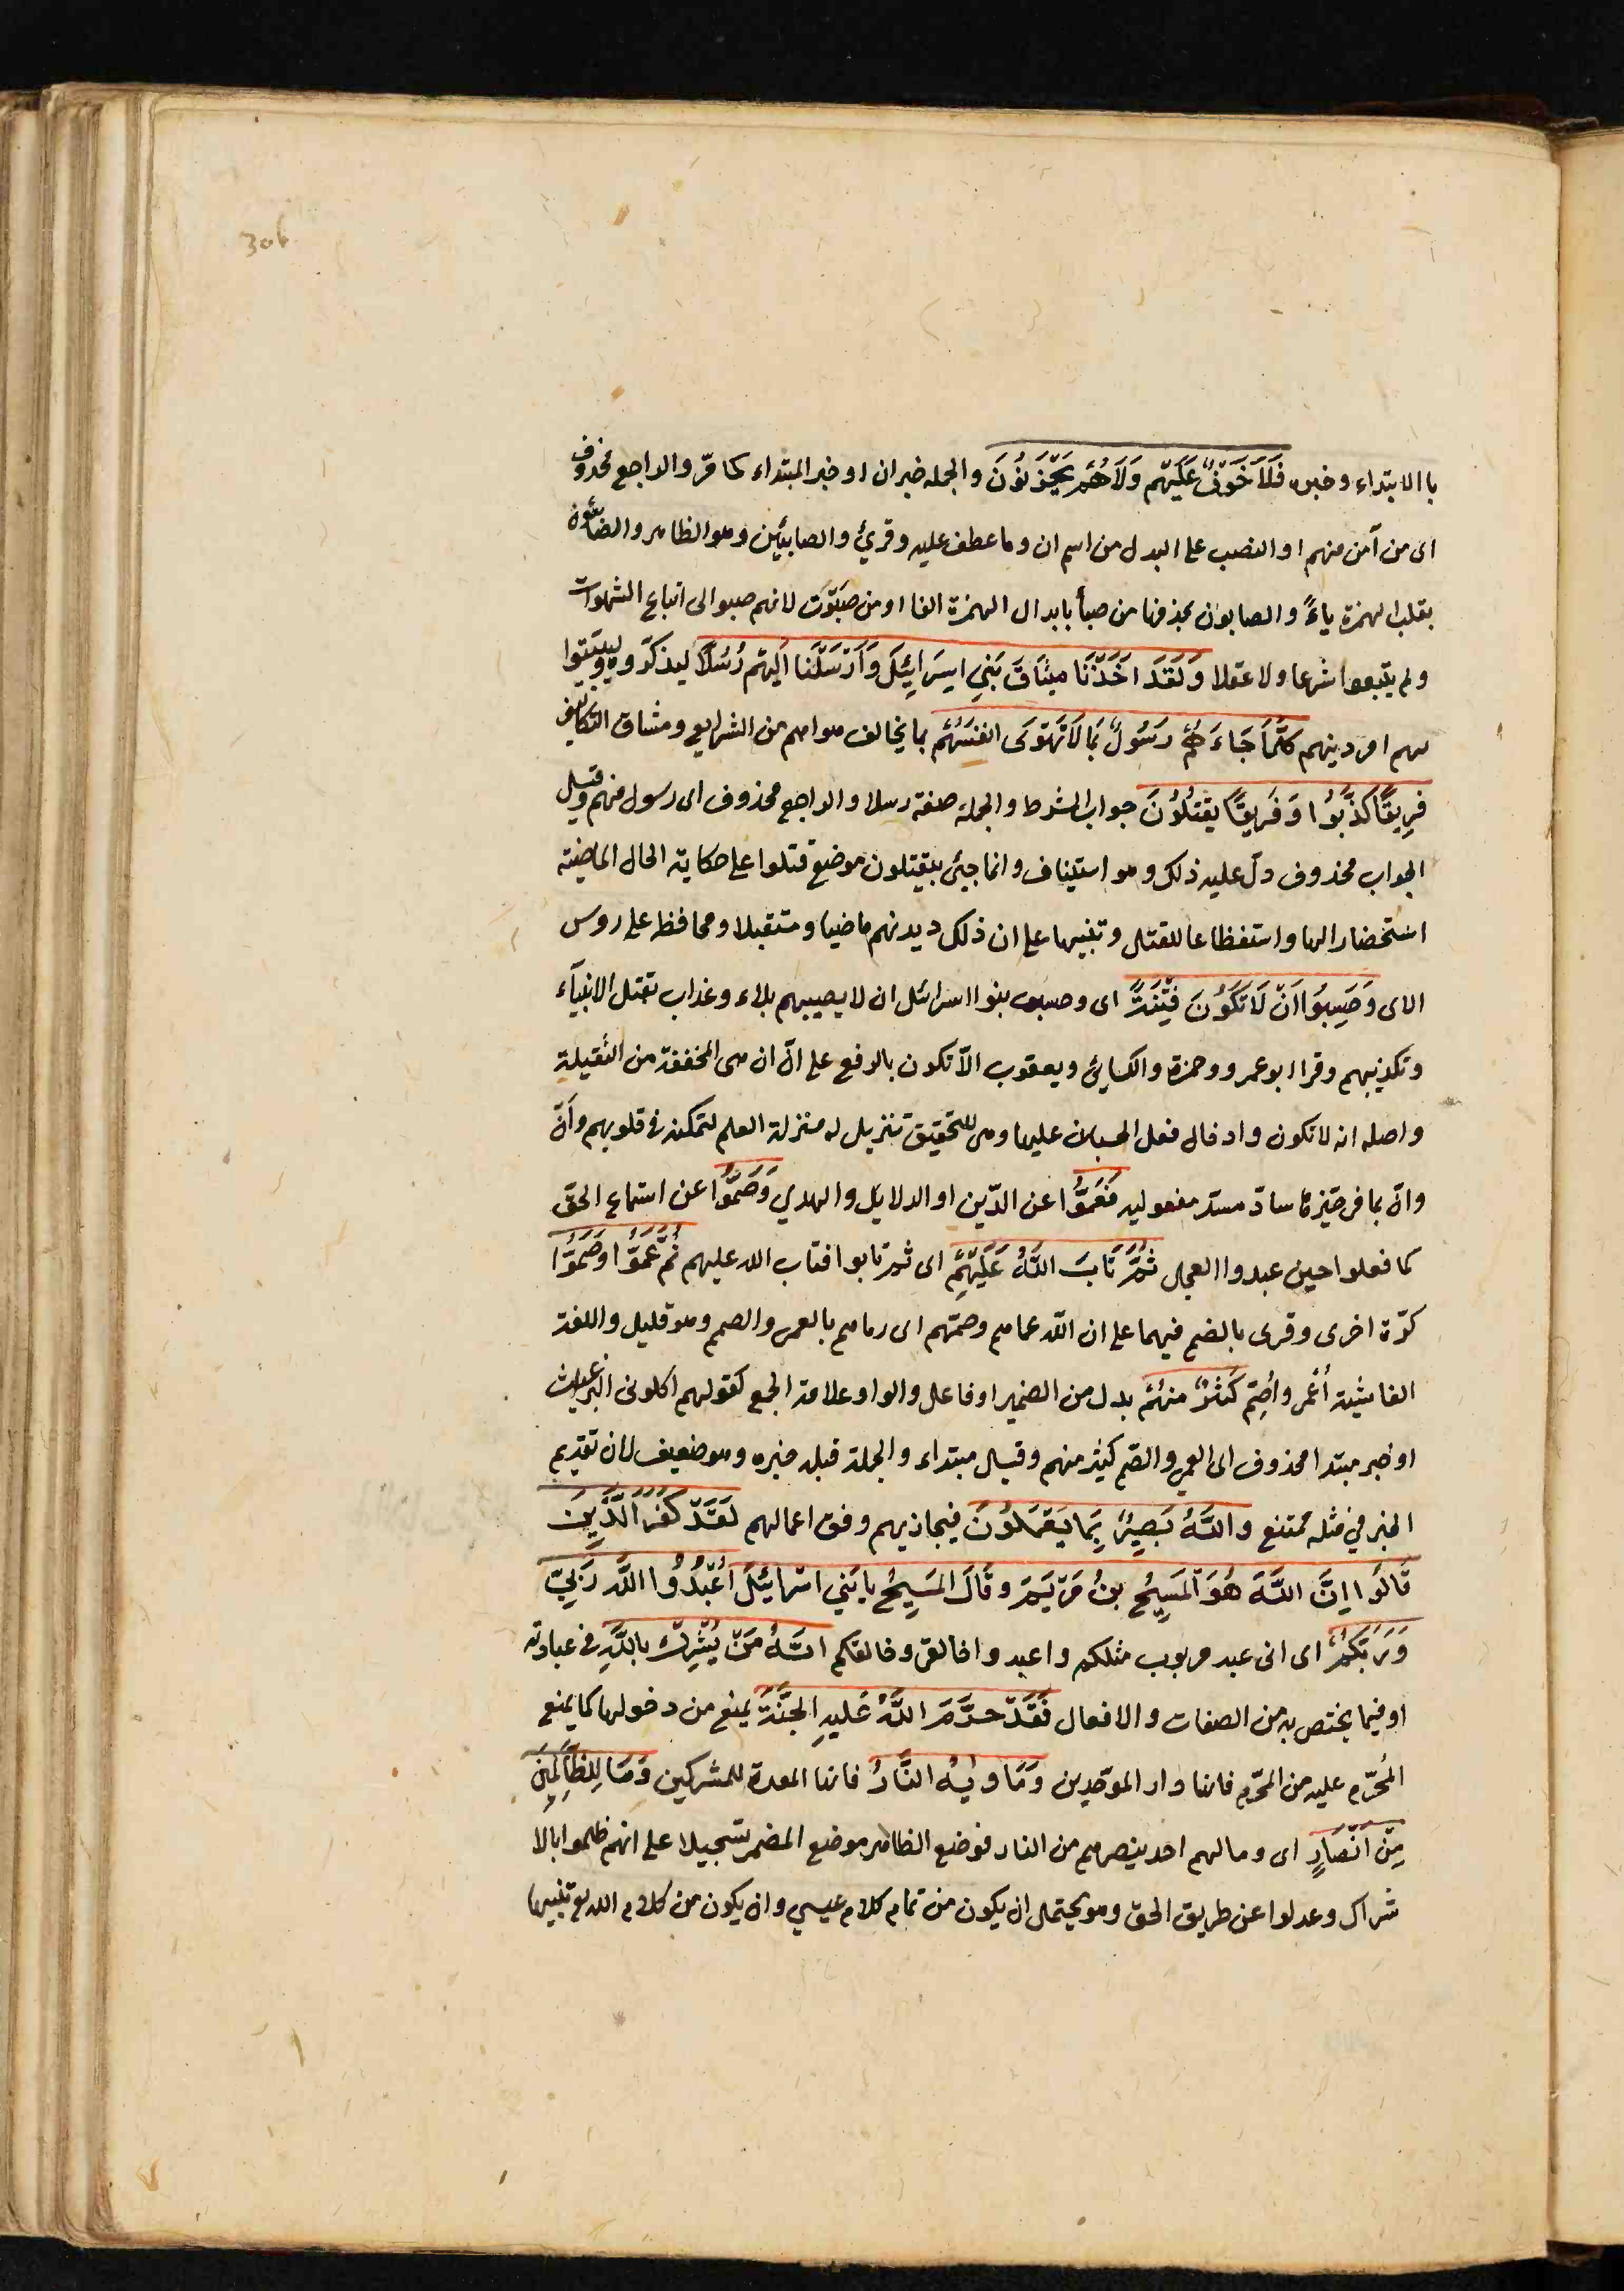 306
با الابتداء وخبره فَلَا خَوْفٌ عَلَيْهِم وَلَا هُمْ يَحْزَنُونَ والجمله خبر ان او خبر المبتداء كما مرّ والراجع محذوف
اى من آمن منهم او النصب على البدل من اسم ان وما عطف عليه وقرئ والصابيئين وهو الظاهر والصابئون
بقلب الهمزة ياءً والصابون بحذفها من صبأ بابدال الهمزة الفا او من صَبَوْت لانهم صبوا الى اتباع الشهوات
ولم يتبعوا شرعا ولا عقلا وَلَقَدْ اَخَذْنَا ميثَاقَ بَنِي اِسرَائِلَ وَاَرْسَلْنَا اليْهم رُسُلًا ليذكروهم وليبيّنوا
لهم امر دينهم كلَّمَا جَاءَهُمْ رَسُولٌ بمَا لَا تَهْوَى انفسُهُم بما يخالف هواهم من الشرايع ومشاق التكاليف
فرِيقًا كَذَّبُوا وَفَريقًا يقتُلُونَ جواب الشرط والجملة صفة رسلا والراجع محذوف اى رسول منهم وقيل
الجواب محذوف دلّ عليه ذلك وهو استيناف وانما جيئ بيقتلون موضع قتلوا على حكاية الحال الماضية
استحضارا لها واستفظاعا للقتل وتنبيها على ان ذلك ديدنهم ماضيا ومستقبلا ومحافظة على روس
الاى وَحَسِبُوا اَنْ لَا تَكُونَ فِتْنَةٌ اى وحسب بنوا اسرائل ان لا يصيبهم بلاء وعذاب بقتل الانبيآء
وتكذيبهم وقرا ابو عمرو وحمزة والكسايئ ويعقوب الّا تكون بالرفع على انّ ان هى المخففة من الثقيلة
واصله انه لا تكون وادخال فعل الحسبان عليها وهى للتحقيق تنزيل له منزلة العلم لتمكنه فى قلوبهم وأنّ
وانّ بما فى حيّزها سادّ مسدّ مفعوليه فَعَمُوْا عن الدّين او الدلايل والهدي وَصَمُّوْا عن استماع الحقّ
كما فعلوا حين عبدوا العجل ثُمَّ تَابَ اللَّهُ عَلَيْهِمْ اى ثم تابوا فتاب الله عليهم ثُمَّ عَمُوْا وَصَمُّوْا
كرّة اخرى وقرى بالضم فيهما على ان الله عماهم وصمّهم اى رماهم بالعمى والصمم وهو قليل واللغة
الفاشية أُعْمى وأُصِمّ كَثيرٌ منهُم بدل من الضمير او فاعل والواو علامة الجمع كقولهم اكلونى البراغيث
او خبر مبتدا محذوف اى العمي والصّم كثير منهم وقيل مبتداء والجملة قبله خبره وهو ضعيف لان تقديم
الخبر في مثله ممتنع واللَّهُ بَصِيرٌ بِمَا يَعْمَلُونَ فيجازيهم وفق اعمالهم لَقَدْ كَفَرَ الَّذِينَ
قَالُوا اِنَّ اللَّهَ هُوَ الْمَسِيحُ بنُ مَرْيَمَ وقَالَ المَسِيحُ يا بَني اسْرايئلَ اعْبُدُوا اللَّه رَبِّي
وَرَبَّكُمْ اى انى عبد مربوب مثلكم واعبدوا خالقى وخالقكم انَّهُ مَنْ يُشْرِك باللَّهِ فى عبادته
او فيما يختص به من الصفات والافعال فَقَدْ حَرَّمَ اللَّهُ عَليهِ الجَنَّةَ يمنع من دخولها كما يمنع
المُحرّم عليه من المحرّم فانها دار الموحّدين وَمَاويهُ النَّارُ فانها المعدة للمشركين وَمَا لِلظَّالِمِينَ
مِنْ انْصَارٍ اى وما لهم احد ينصرهم من النار فوضع الظاهر موضع المضمر تسجيلا على انهم ظلموا بالا
شراك وعدلوا عن طريق الحق وهو يحتمل ان يكون من تمام كلام عيسي وان يكون من كلام الله تع تنبيها